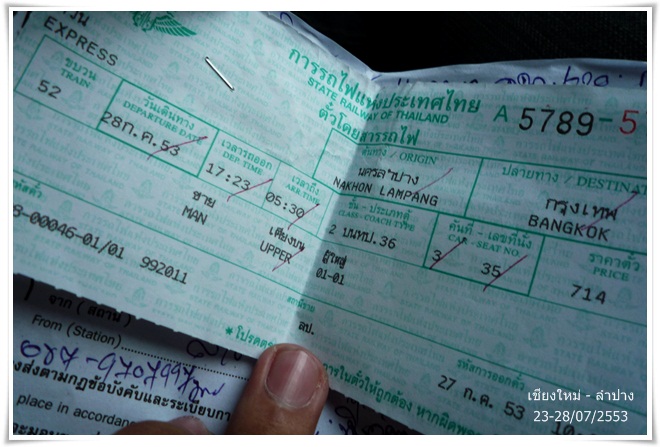 EXPRESS
ขบวน
TRAIN
52
วันเดินทาง
DEPARTURE DATE
28ก.ค.53
เวลารถออก
DEP.TIME
17:23
เวลาถึง
ARR.TIME
05:30
การรถไฟแห่งประเทศไทย
STATE RAILWAY OF THAILAND
ตั๋วโดยสารรถไฟ
A 5789-5
ต้นทาง / ORIGIN
นครลำปาง
NAKHON LAMPANG
ปลายทาง / DESTINA
กรุงเทพ
BANGKOK
ชั้น - ประเภทตู้
CLASS - COACH TYPE
2 บนทป.36
คันที่ - เลขที่นั่ง
CAR - SEAT NO.
3 35
ราคาตั๋ว
PRICE
714
รหัสตั๋ว
8-00046-01/01 992011
ชาย
MAN
เตียงบน
UPPER
ผู้ใหญ่
01-01
ลป.
รหัสการออกตั๋ว
27 ก.ค. 53
จาก (สถานี)
From (Station)
087-9707997
place in accordanc
เชียงใหม่ - ลำปาง
23-28/07/2553